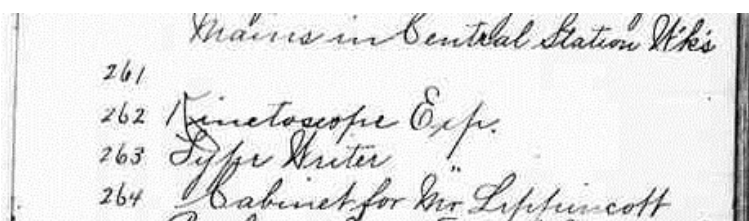 Mains in Central Station Wks
261
262 Kinetoscope Exp.
263 Type Writer
264 Cabinet for Mr Lippincott